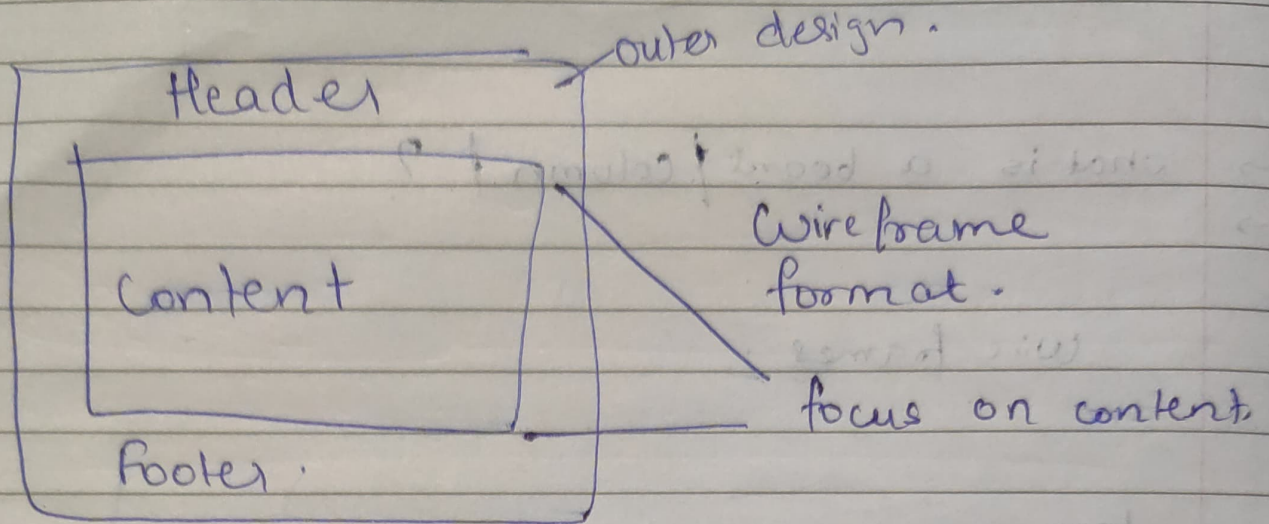 outer design.
Header
Wireframe
Content
format.
focus on content.
Footer.